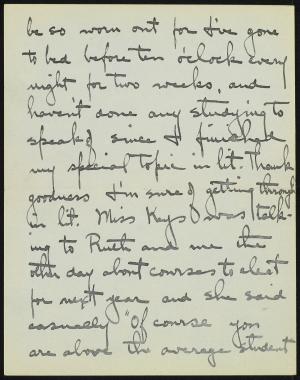 be so worn out for I've gone
to bed before ten o'clock every
night for two weeks, and
haven't done any studying to
speak of since I finished
my special topic in lit. Thank
goodness I'm sure of getting through
in lit. Miss Keys was talk-
ing to Ruth and me the
other day about courses to elect
for next year and she said
casually "Of course you
are above the average student